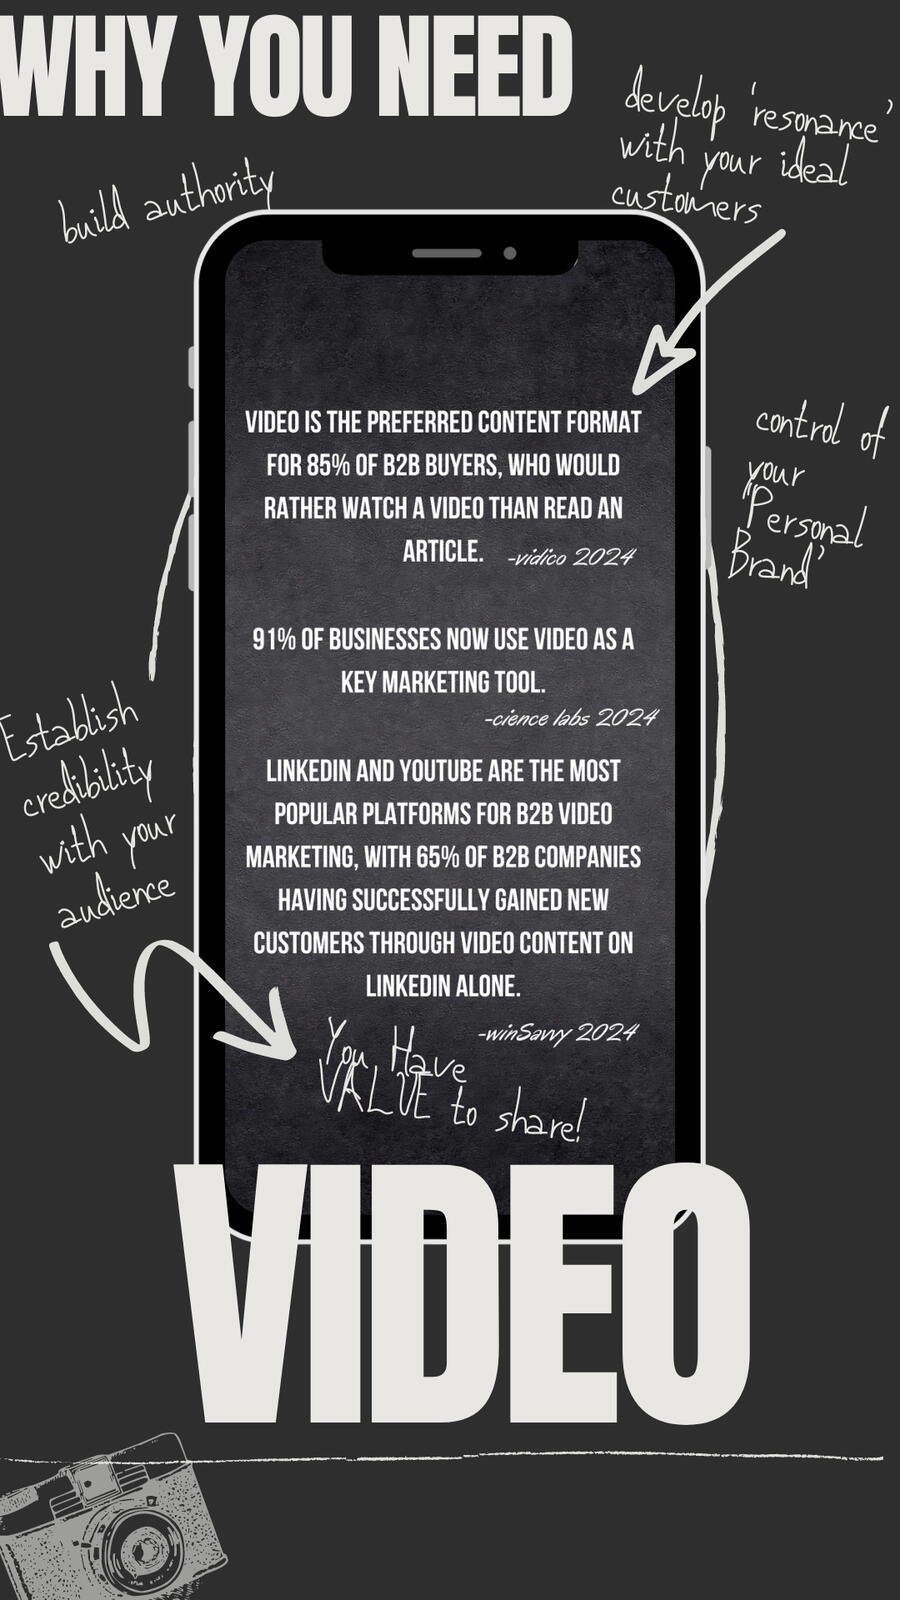 WHY YOU NEED
develop 'resonance'
with your ideal
customers
build authority
VIDEO IS THE PREFERRED CONTENT FORMAT
FOR 85% OF B2B BUYERS, WHO WOULD
RATHER WATCH A VIDEO THAN READ AN
ARTICLE. -vidico 2024
control of
your
"Personal
Brand'
91% OF BUSINESSES NOW USE VIDEO AS A
KEY MARKETING TOOL.
-cience labs 2024
Establish
credibility
with your
audience
LINKEDIN AND YOUTUBE ARE THE MOST
POPULAR PLATFORMS FOR B2B VIDEO
MARKETING, WITH 65% OF B2B COMPANIES
HAVING SUCCESSFULLY GAINED NEW
CUSTOMERS THROUGH VIDEO CONTENT ON
LINKEDIN ALONE.
-winSavvy 2024
You Have
VALUE to share!
VIDEO